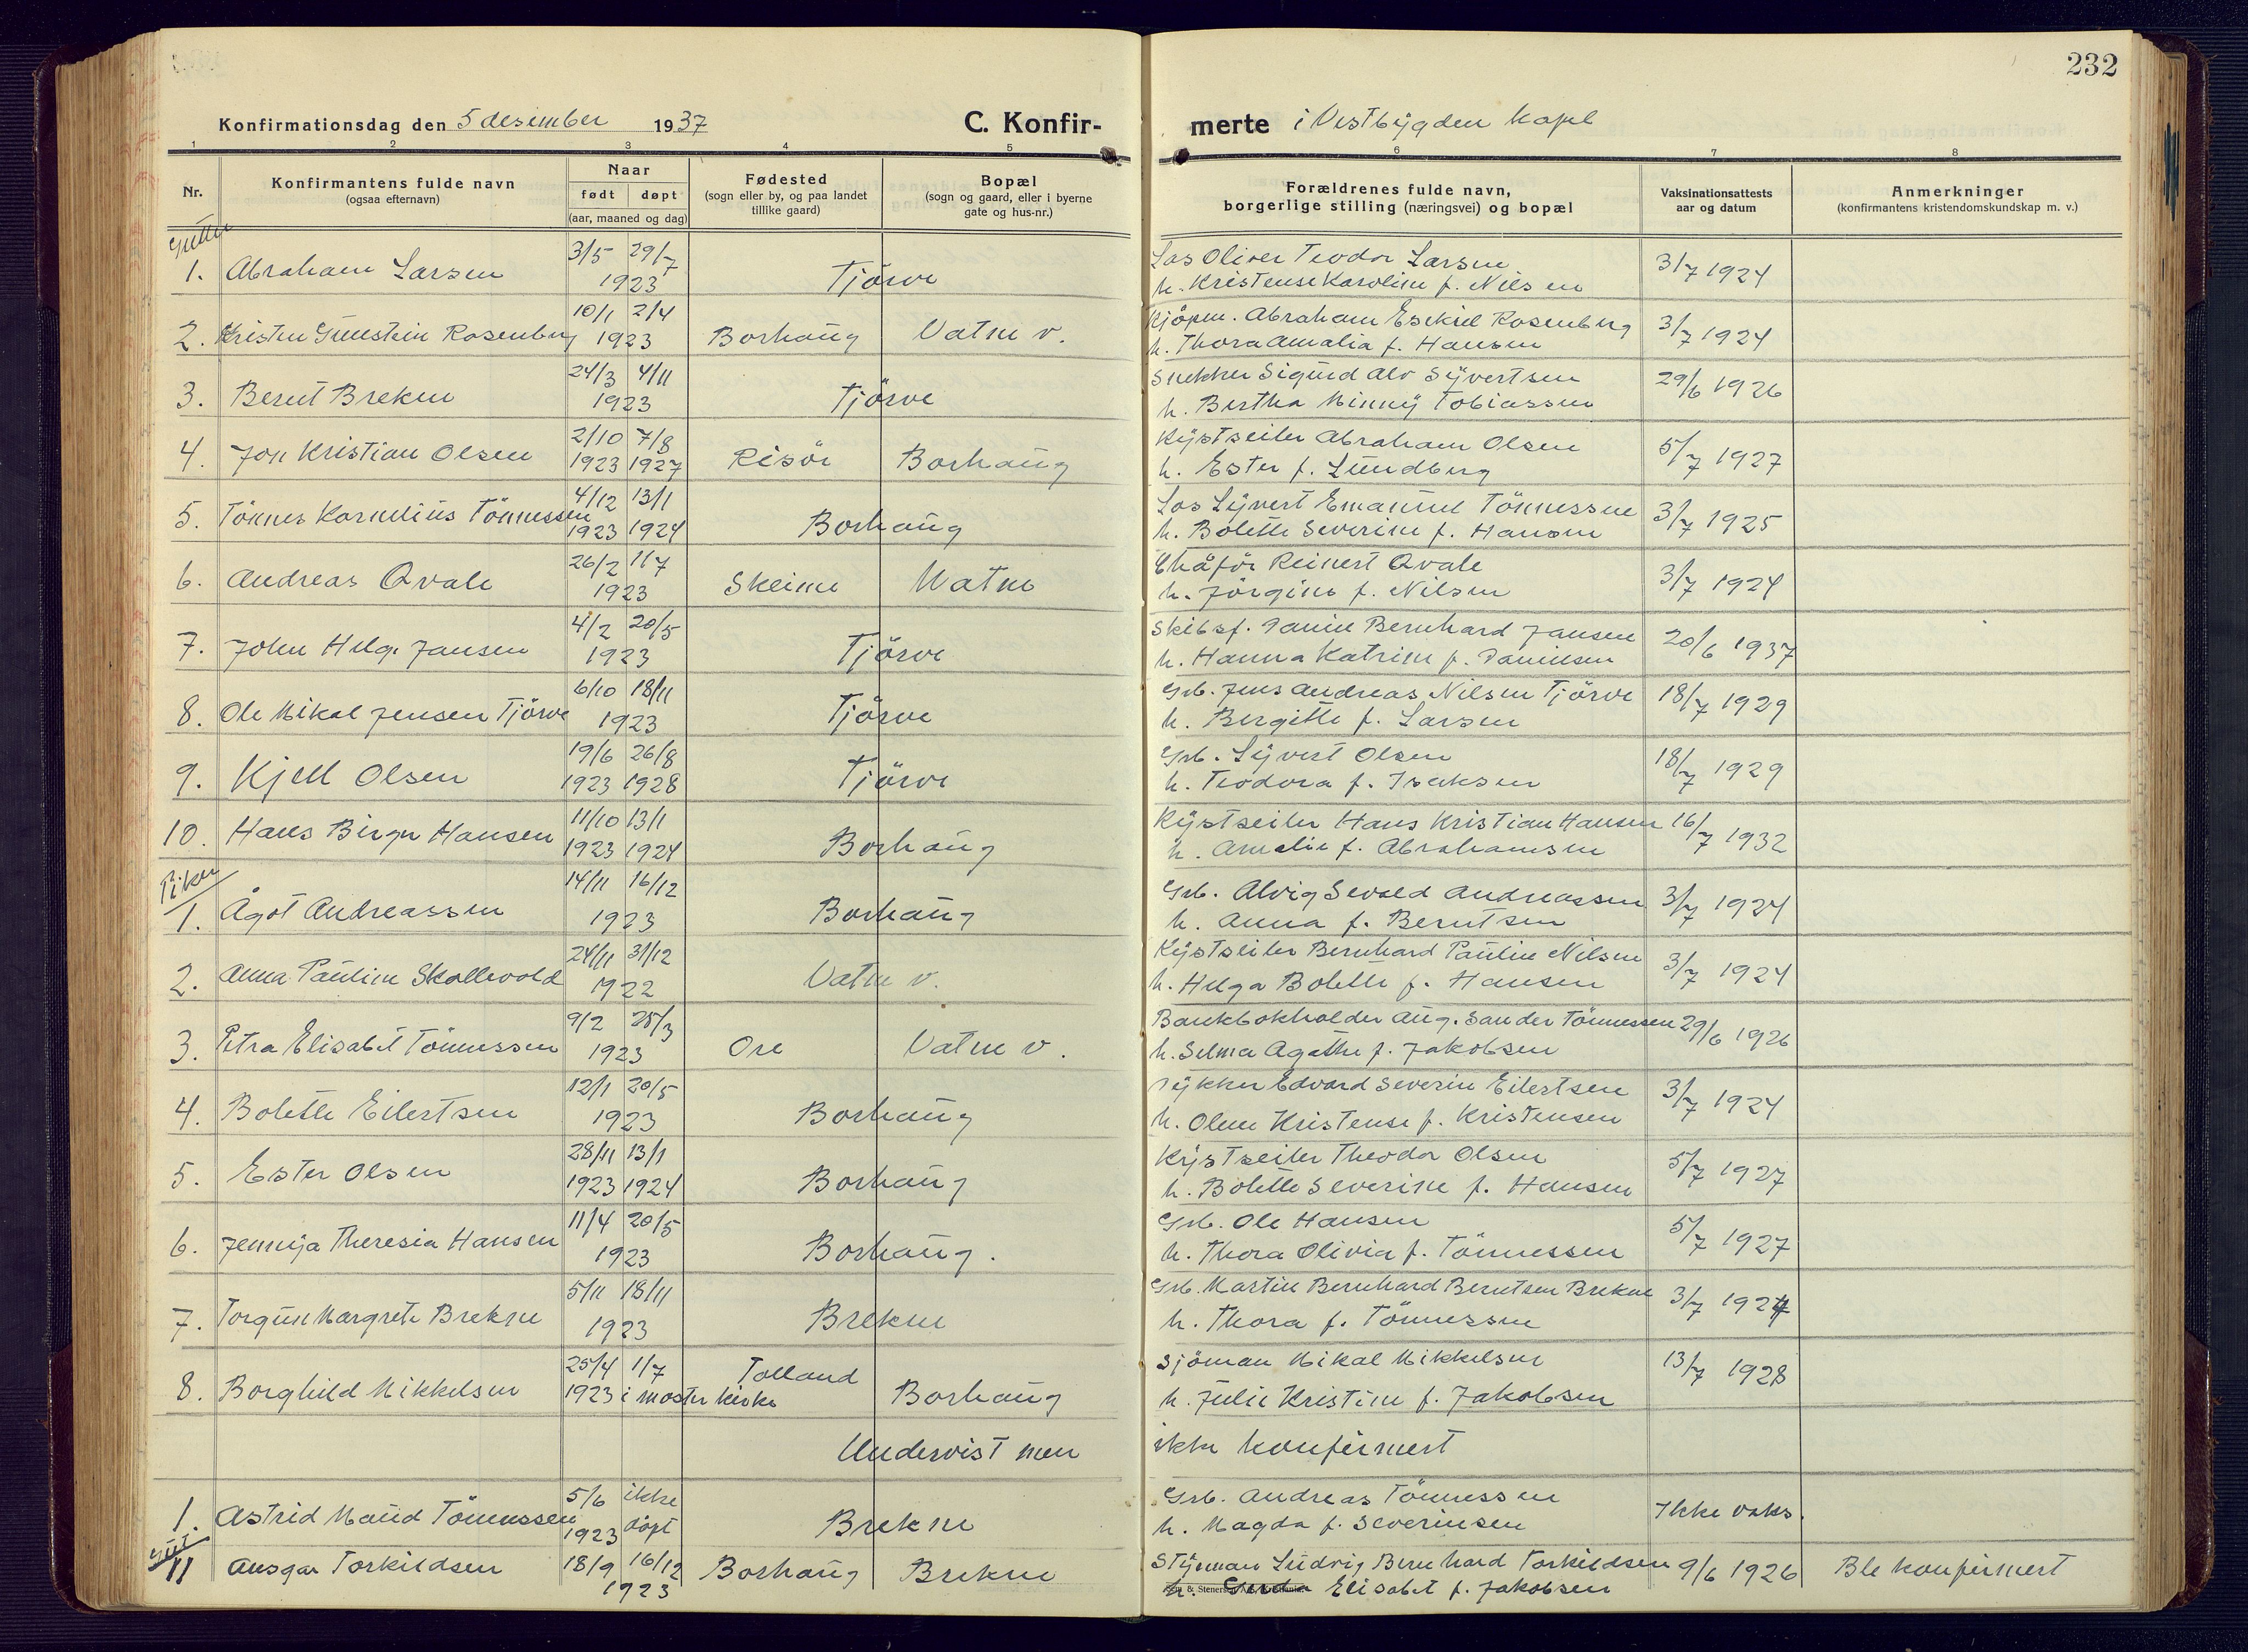 232
Konfirmationsdag den 5 desember 1937 C. Konfir-merte i Vestbygden Kapel
1 2 3 4 5 6 7 8
Nr.
Konfirmantens fulde navn
(ogsaa efternavn)
Naar
født døpt
(aar, maaned og dag)
Fødested
(sogn eller by, og paa landet
tillike gaard)
Bopæl
(sogn og gaard, eller i byerne
gate og hus-nr.)
Forældrenes fulde navn,
borgerlige stilling (næringsvei) og bopæl
Vaksinationsattests
aar og datum
Anmerkninger
(konfirmantens kristendomskundskap m. v.)
Gutter
3/5 29/7 Los Oliver Teodor Larsen
1. Abraham Larsen 1923 Tjörve h. Kristense Karoline f. Nilsen 3/7 1924
10/1 2/4 Kjöpm. Abraham Esekiel Rosenberg
2. Kristen Gunstein Rosenberg 1923 Borhaug Vatne v. h. Thora Amalia f. Hansen 3/7 1924
24/3 4/11 Snekker Sigurd Alv Syvertsen
3. Bernt Brekne 1923 Tjörve h. Bertha Minny Tobiassen 29/6 1926
2/10 7/8 Kystseiler Abraham Olsen
4. Jon Kristian Olsen 1923 1927 Risör Borhaug h. Ester f. Lundberg 5/7 1927
4/12 13/1 Los Syvert Emanuel Tönnessen
5. Tönnes Kornelius Tönnessen 1923 1924 Borhaug h. Bolette Severine f. Hansen 3/7 1925
26/2 1/7 Chåför Reinert Qvale
6. Andreas Qvale 1923 Skeime Vatne h. Jörgine f. Nilsen 3/7 1924
4/2 20/5 Skibsf. Daniel Bernhard Jansen
7. John Helge Jansen 1923 Tjörve h. Hanna Katrine f. Danielsen 20/6 1937
6/10 18/11 Grb. Jens Andreas Nilsen Tjörve
8. Ole Mikal Jensen Tjörve 1923 Tjörve h. Bergitte f. Larsen 18/7 1929
19/6 26/8 Grb. Syvert Olsen
9. Kjell Olsen 1923 1928 Tjörve h. Teodora f. Isaksen 18/7 1929
11/10 13/1 Kystseiler Hans Kristian Hansen
10. Hans Birger Hansen 1923 1924 Borhaug h. Amalie f. Abrahamsen 16/7 1932
Piker
14/11 16/12 Grb. Alvig Sevald Andreassen
1. Ågot Andreassen 1923 Borhaug h. Anna f. Berntsen 3/7 1924
24/11 31/12 Kystseiler Bernhard Paulin Nilsen
2. Anna Pauline Skollevold 1922 Vatne v. h. Helga Bolette f. Hansen 3/7 1924
9/2 25/3 Bankbokholder Aug. Sander Tönnessen
3. Petra Elisabet Tönnessen 1923 Ore Vatne v. h. Selma Agathe f. Jakobsen 29/6 1926
12/1 20/5 Dykker Edvard Severin Eilertsen
4. Bolette Eilertsen 1923 Borhaug h. Olene Kristense f. Kristensen 3/7 1924
28/11 13/1 Kystseiler Theodor Olsen
5. Ester Olsen 1923 1924 Borhaug h. Bolette Severine f. Hansen 5/7 1927
11/4 20/5 Grb. Ole Hansen
6. Jennija Theresia Hansen 1923 Borhaug. h. Thora Olivia f. Tönnessen 5/7 1927
5/11 18/11 Grb. Martin Bernhard Berntsen Brekne
7. Torgun Margrete Brekne 1923 Brekne h. Thora f. Tönnessen 3/7 1924
25/4 1/7 Tolland Sjöman Mikal Mikkelsen
8. Borghild Mikkelsen 1923 i Moster kirke Borhaug h. Julie Kristine f. Jakobsen 13/7 1928
Undervist men ikke konfirmert
5/6 ikke Grb. Andreas Tönnessen
1. Astrid Maud Tönnessen 1923 döpt Brekne h. Magda f. Severinsen Ikke vaks.
Gut.
18/9 16/12 Styrman Ludvig Bernhard Torkildsen
11 Ansgar Torkildsen 1923 Borhaug Brekne h. Gerda Elisabet f. Jakobsen 9/6 1926 Ble konfirmert